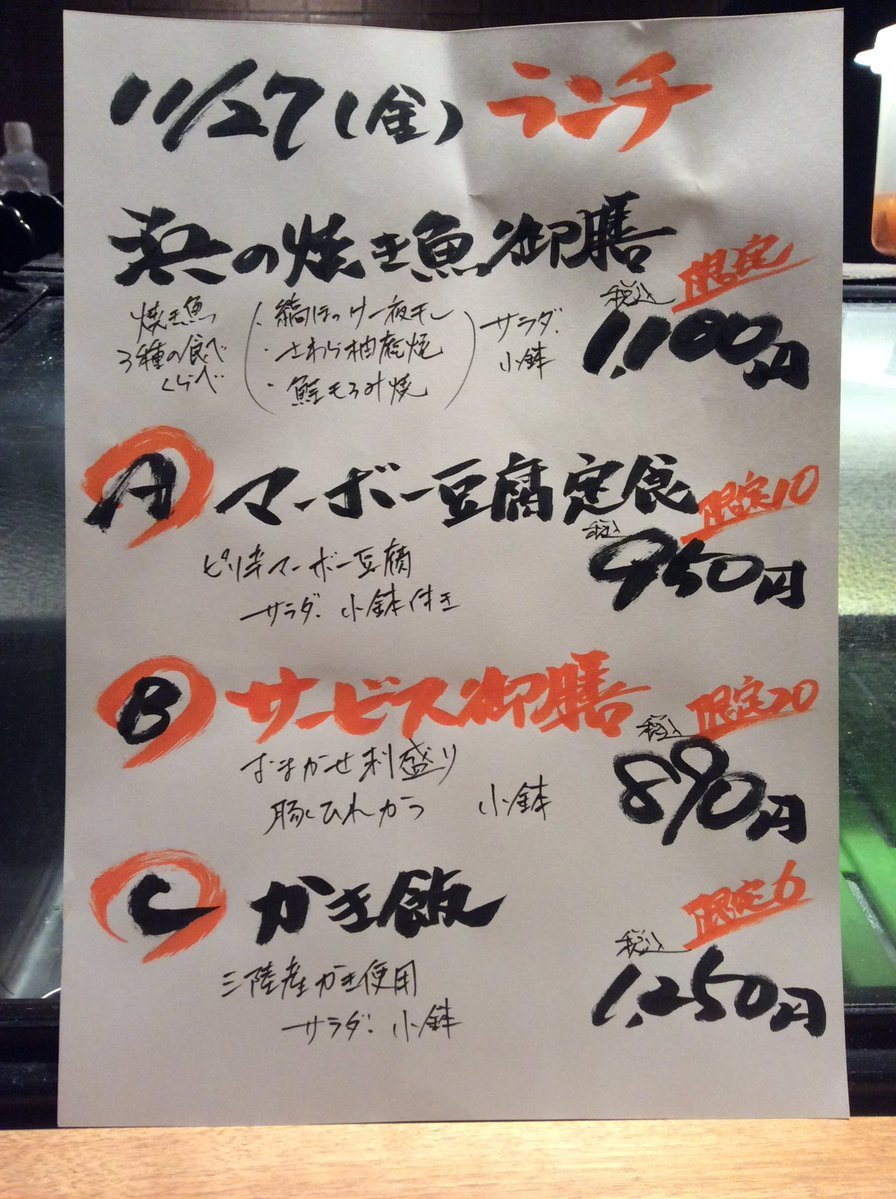 11/27(金) ランチ
浜の焼き魚御膳 限定
税込 1,100円
焼き魚
3種の食べ
くらべ
・縞ほっけ一夜干し
・さわら柚庵焼
・鮭もろみ焼
サラダ.
小鉢
A マーボー豆腐定食 限定10
税込 950円
ピリ辛マーボー豆腐
サラダ. 小鉢付き
B サービス御膳 限定20
税込 890円
おまかせ刺盛り
豚ひれかつ 小鉢
C かき飯 限定6
税込 1,250円
三陸産かき使用
サラダ. 小鉢